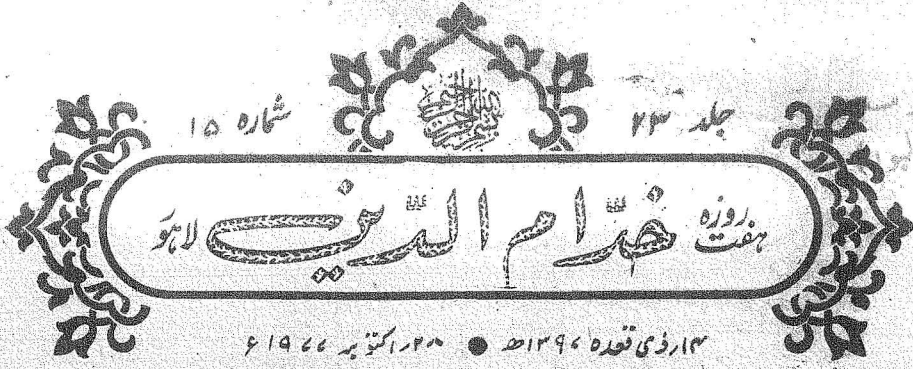 بسم الله الرحمن الرحيم
جلد ۲۳ شمارہ ۱۵
ہفت روزہ خدّام الدّین لاہور
۱۴؍ ذی قعدہ ۱۳۹۷ھ ● ۲۸؍ اکتوبر ۱۹۷۷ء